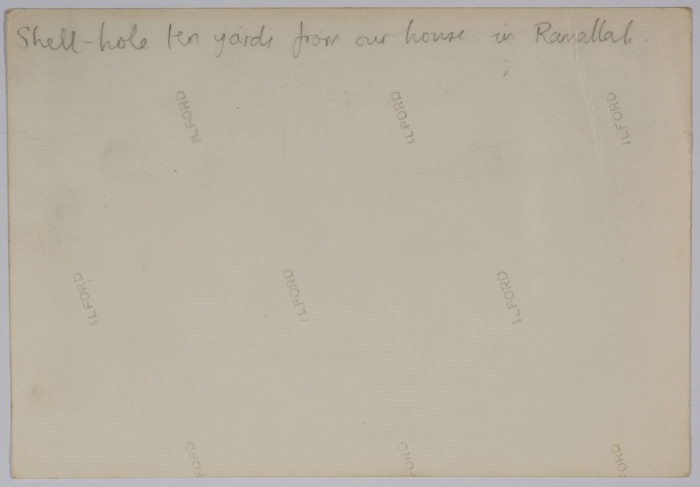 Shell-hole ten yards from our house in Ramallah.
ILFORD
ILFORD
ILFORD
ILFORD
ILFORD
ILFORD
FORD
FORD
FORD